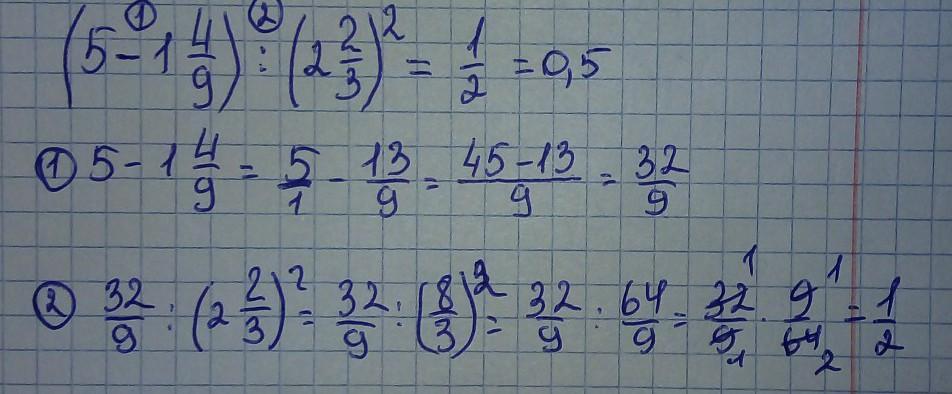 (5 - 1 4/9) : (2 2/3)² = 1/2 = 0,5
① ②
① 5 - 1 4/9 = 5/1 - 13/9 = 45-13/9 = 32/9
② 32/9 : (2 2/3)² = 32/9 : (8/3)² = 32/9 : 64/9 = 32 1/9 1 · 9 1/64 2 = 1/2